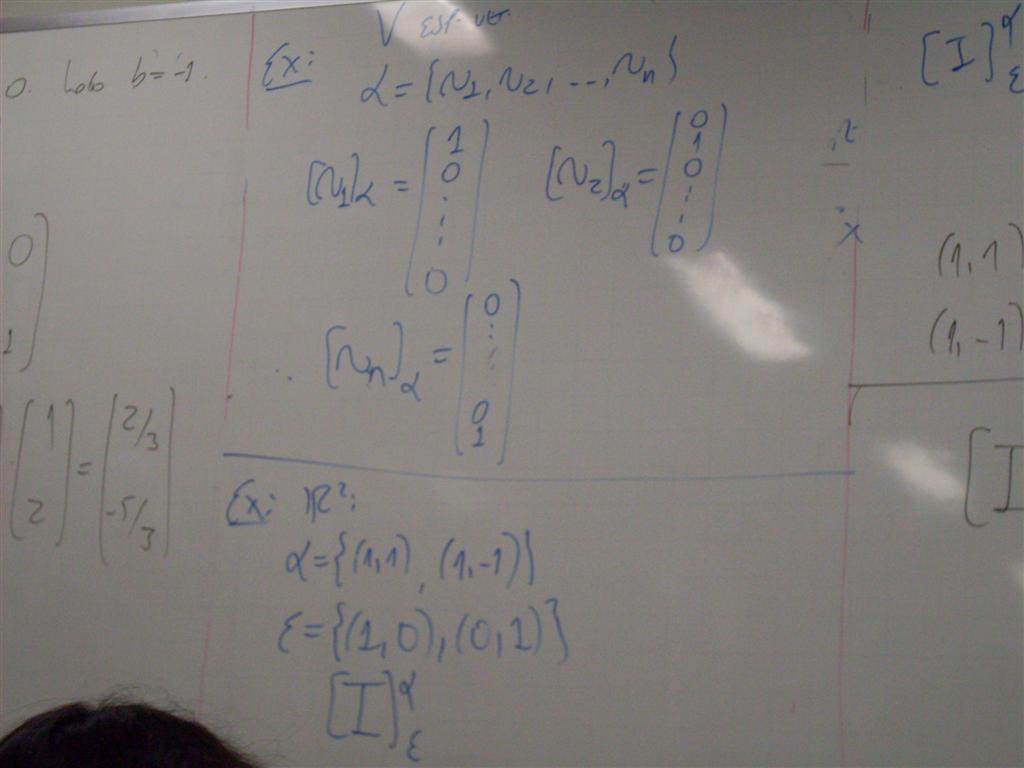 0. Logo b = -1.
0
1
[1 2] = [2/3 -5/3]
V Esp. vet.
Ex: α = {v1, v2, ..., vn}
[v1]α = [1 0 ⋮ 0] [v2]α = [0 1 0 ⋮ 0]
.. [vn]α = [0 ⋮ 0 1]
Ex: ℝ²:
α = {(1,1), (1,-1)}
ε = {(1,0), (0,1)}
[I]^α_ε
[I]^α_ε
(1,1)
(1,-1)
[I